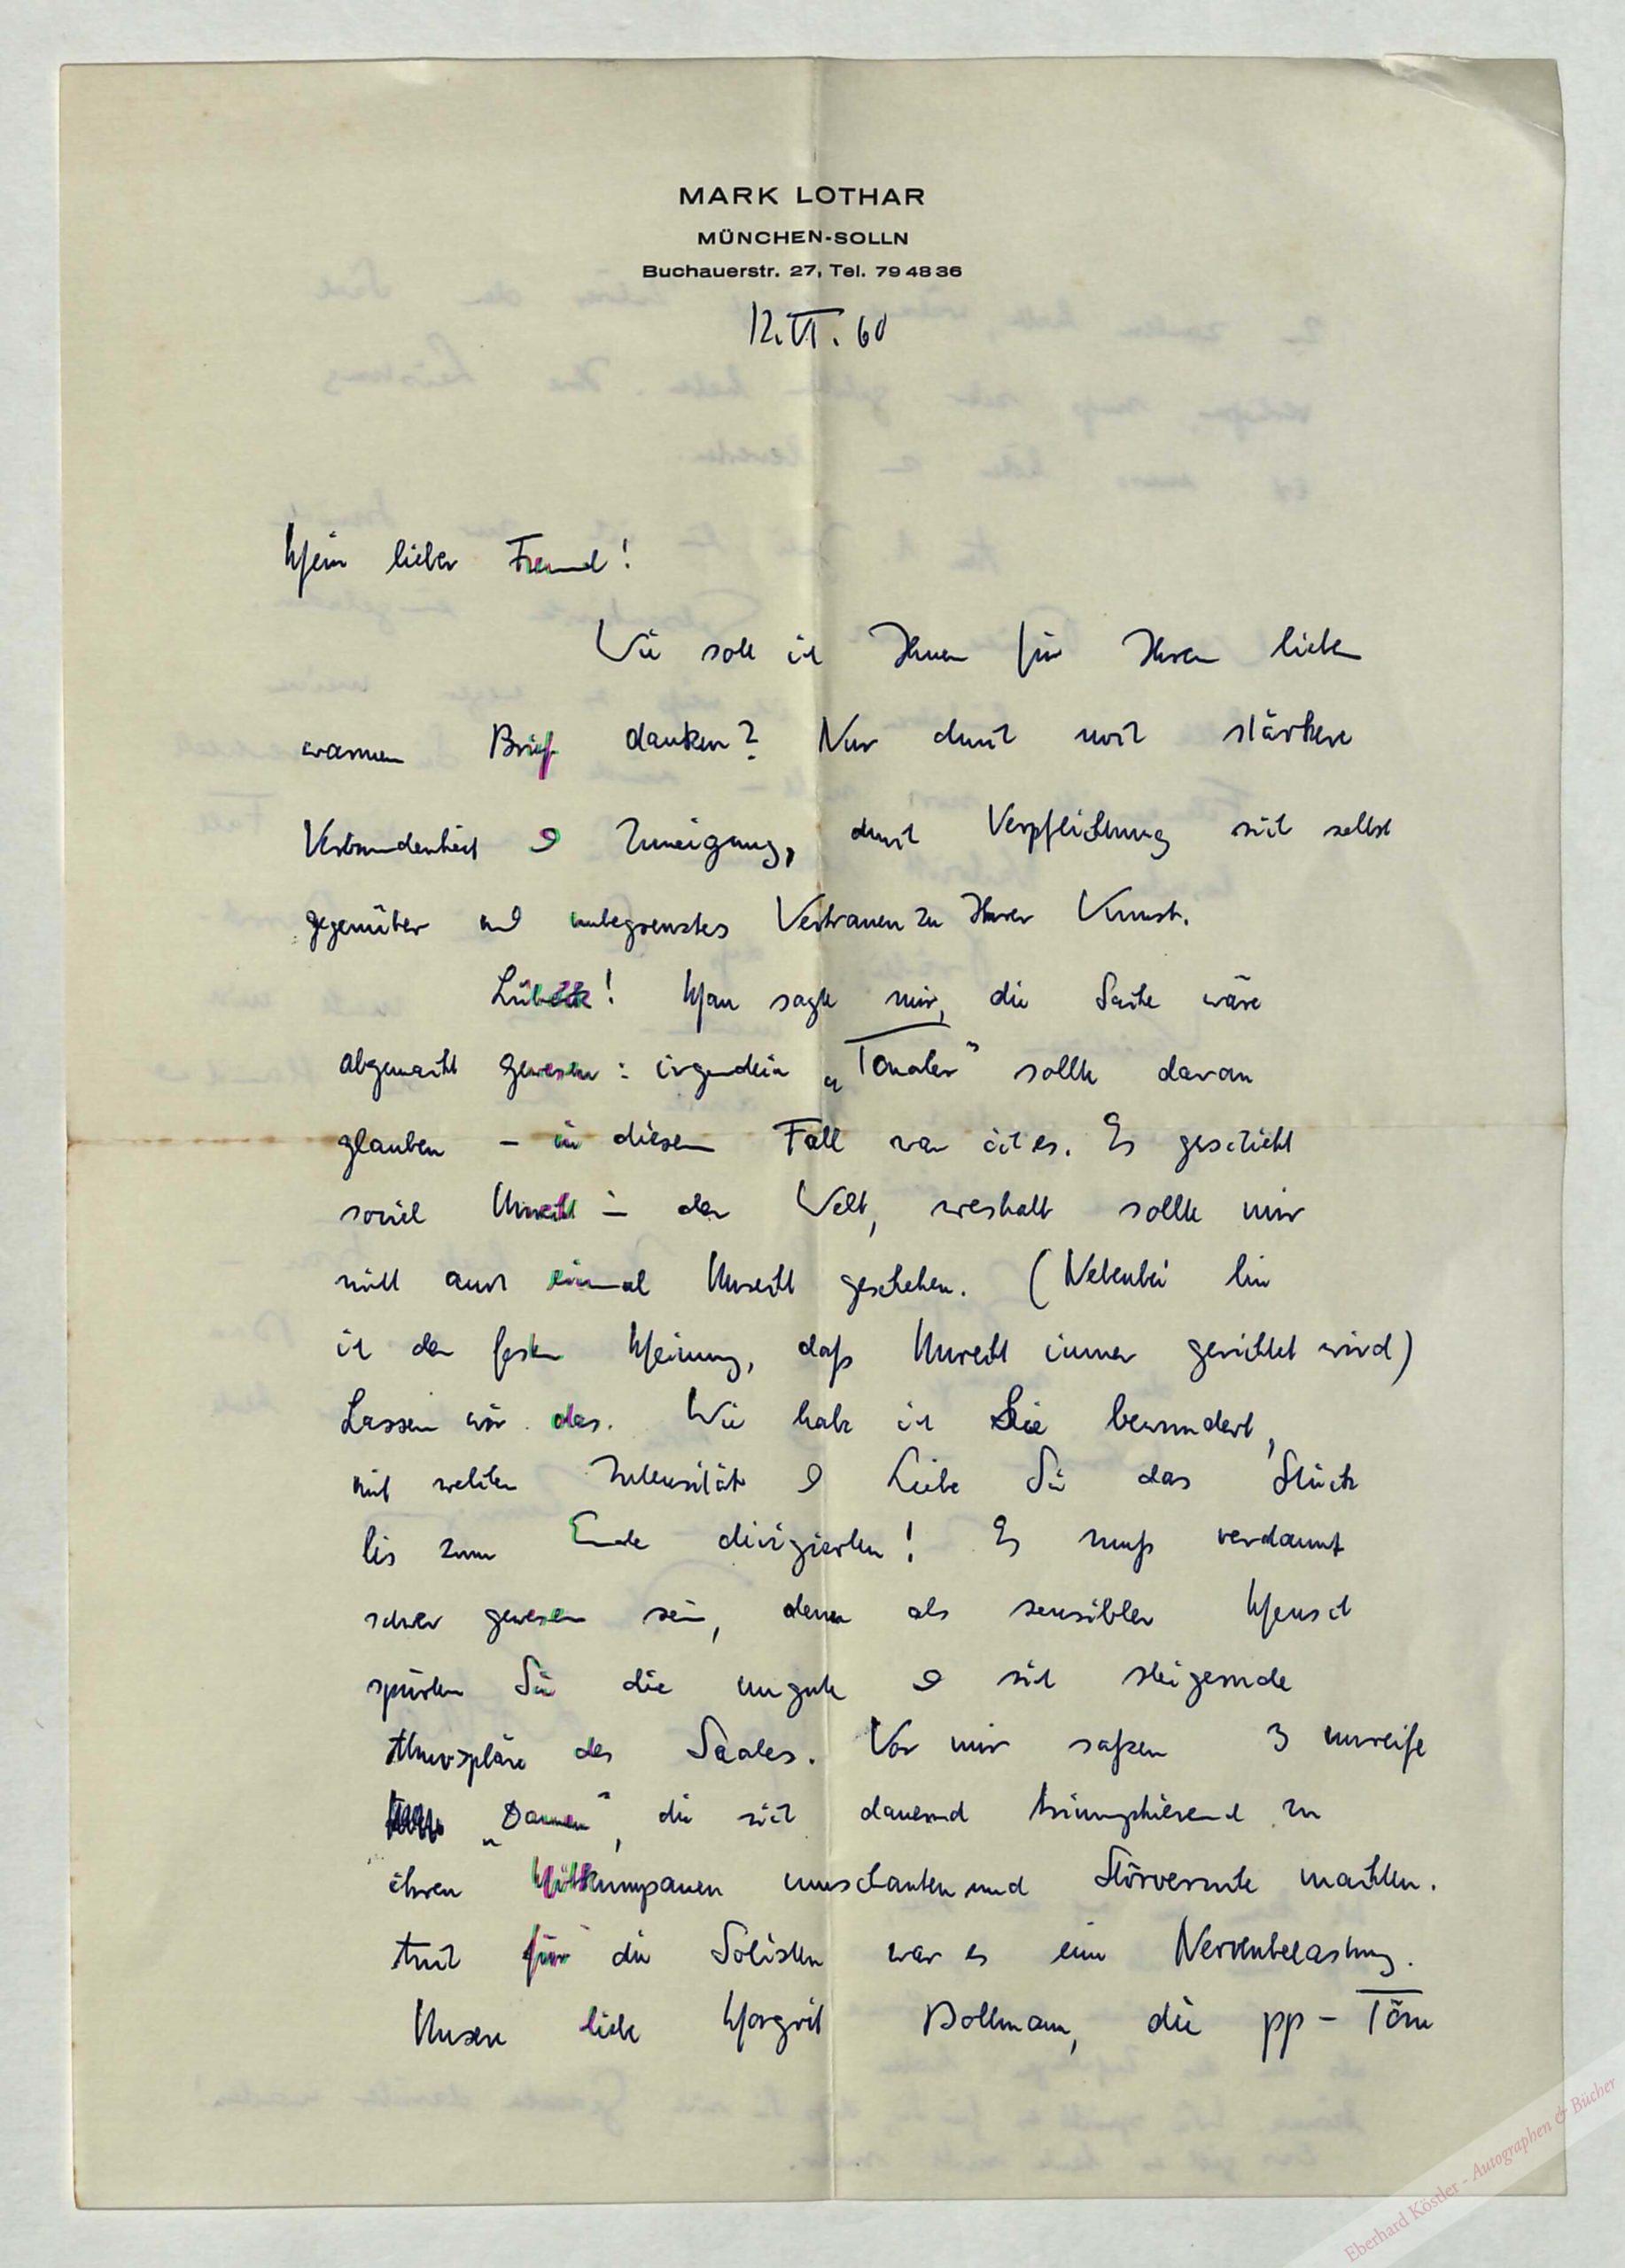 MARK LOTHAR
MÜNCHEN-SOLLN
Buchauerstr. 27, Tel. 79 48 36
12. VI. 60
Mein lieber Freund!
Wie soll ich Ihnen für Ihren lieben
warmen Brief danken? Nur durch noch stärkere
Verbundenheit & Zuneigung, durch Verpflichtung sich selbst
gegenüber und unbegrenztes Vertrauen zu Ihrer Kunst.
Lübeck! Man sagte mir, die Sache wäre
abgemacht gewesen: irgendein „Tonaler" sollte daran
glauben – in diesem Fall war ich es. Es geschieht
soviel Unrecht in der Welt, weshalb sollte mir
nicht auch einmal Unrecht geschehen. (Nebenbei bin
ich der festen Meinung, daß Unrecht immer gerichtet wird)
Lassen wir das. Wie habe ich Sie bewundert,
mit welcher Intensität & Liebe Sie das Stück
bis zum Ende dirigierten! Es muß verdammt
schwer gewesen sein, denn als sensibler Mensch
spürten Sie die ungute & sich steigernde
Atmosphäre des Saales. Vor mir saßen 3 unreife
„Damen", die sich dauernd triumphierend zu
ihren Mitkumpanen umschauten und Störversuche machten.
Auch für die Solisten war es eine Nervenbelastung.
Unsere liebe Margrit Bollmann, die pp – Töne
Eberhard Köstler - Autographen & Bücher